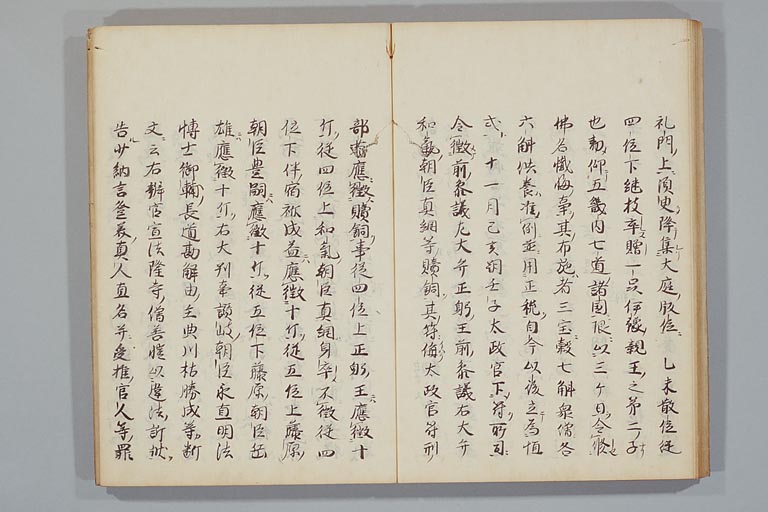 礼門上頂史降集大庭版位 乙未散位従
四位下継枝卒贈一品伊豫親王之第二子
也勅仰五畿内七道諸国限以三ケ日令修
佛名懺悔事其布施者三宝穀七斛衆僧各
六斛供養准例並用正税自今以後立為恒
式 十一月己亥朔壬子太政官下符所司
令徴前参議左大弁正躬王前参議右大弁
和氣朝臣真綱等贖銅其符偁太政官符刑
部省應徴贖銅事従四位上正躬王應徴十
斤従四位上和氣朝臣真綱身卒不徴従四
位下伴宿祢成益應徴十斤従五位上藤原
朝臣豊嗣應徴十斤従五位下藤原朝臣岳
雄應徴十斤右大判事讃岐朝臣永直明法
博士御輔長道勘解由主典川枯勝成等断
文云右辨官宣法隆寺僧善愷以違法訴状
告少納言登美真人直名并受推官人等罪